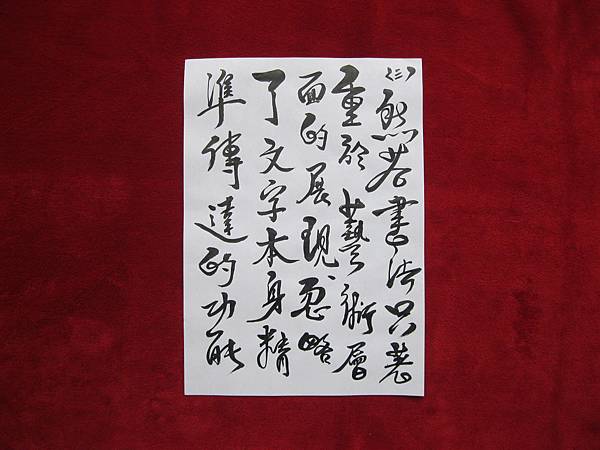 (三)然若書法只著
重於藝術層
面的展現、忽略
了文字本身精
準傳達的功能